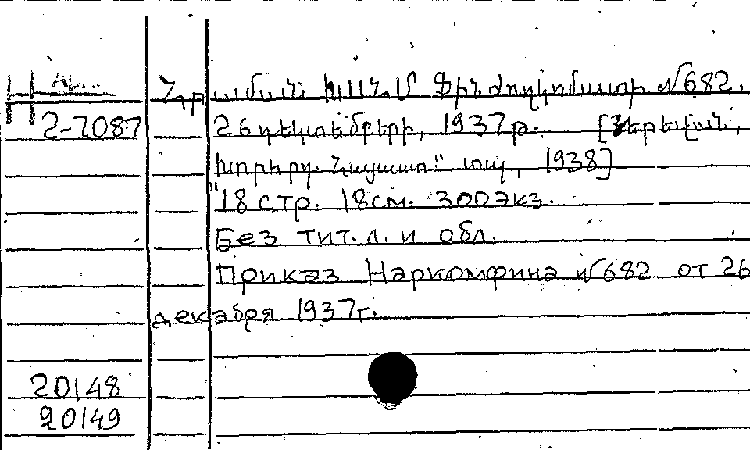 Հրաման ԽՍՀՄ Ֆինժողկոմատի №682.
2-7087 26 դեկտեմբերի, 1937թ. [Երեվան,
խորհրդ. Հայաստ." տպ, 1938]
18 стр. 18см. 300экз.
Без тит. л. и обл.
Приказ Наркомфина №682 от 26
декабря 1937г.
20148
20149